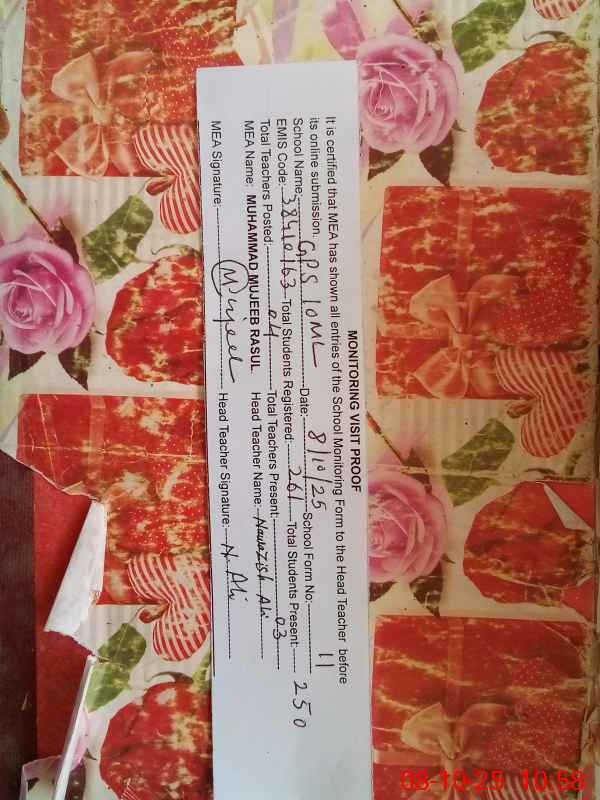 MONITORING VISIT PROOF
It is certified that MEA has shown all entries of the School Monitoring Form to the Head Teacher before
its online submission.
School Name: GPS 10ML Date: 8/10/25 School Form No: 11
EMIS Code: 38410163 Total Students Registered: 261 Total Students Present: 250
Total Teachers Posted: 04 Total Teachers Present: 03
MEA Name: MUHAMMAD MUJEEB RASUL Head Teacher Name: Nawazish Ali
MEA Signature: Mujeeb Head Teacher Signature: N Ali
08-10-25 10:58